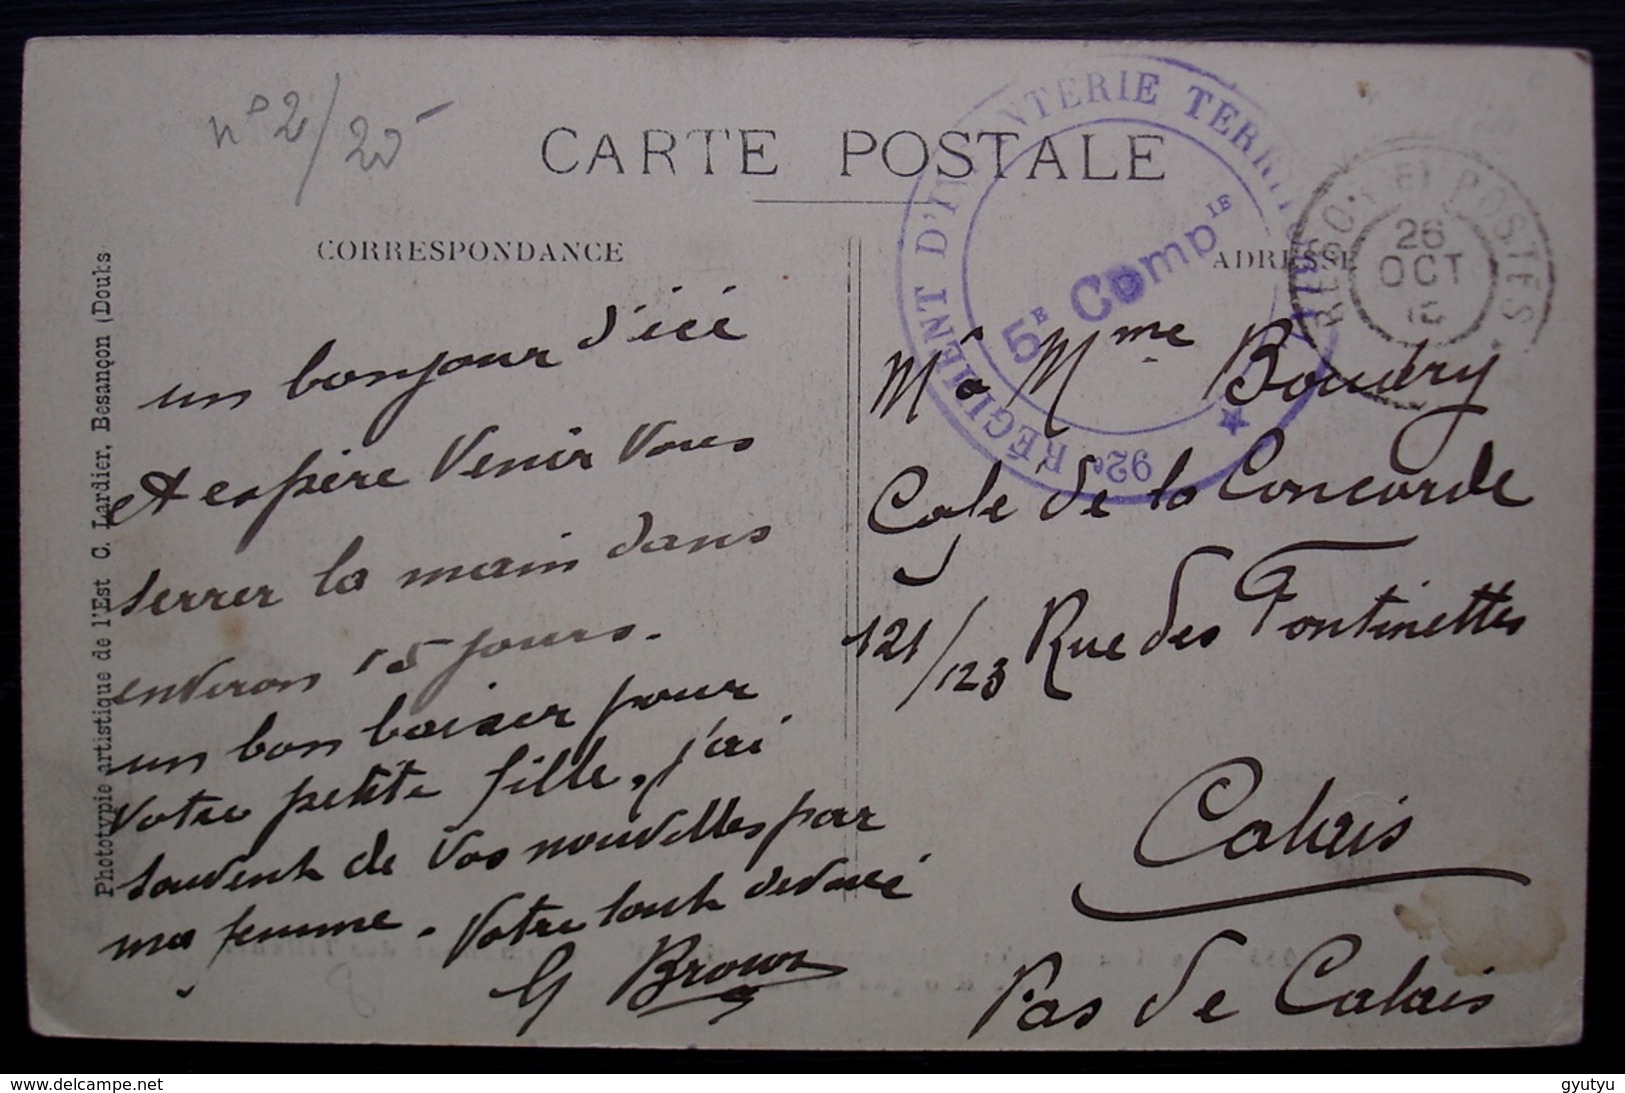 n° 2/20
CARTE POSTALE
CORRESPONDANCE
ADRESSE
92e RÉGIMENT D'INFANTERIE TERRITORIALE
5E CompIE
TRESOR ET POSTES
26
OCT
15
un bonjour d'ici
et espère venir vous
serrer la main dans
environ 15 jours.
un bon baiser pour
votre petite fille, j'ai
souvent de vos nouvelles par
ma femme. Votre tout dévoué
G Brown
Mr & Mme Boudry
Cafe de la Concorde
121/123 Rue des Fontinettes
Calais
Pas de Calais
Phototypie artistique de l'Est C. Lardier, Besançon (Doubs
gyutyu